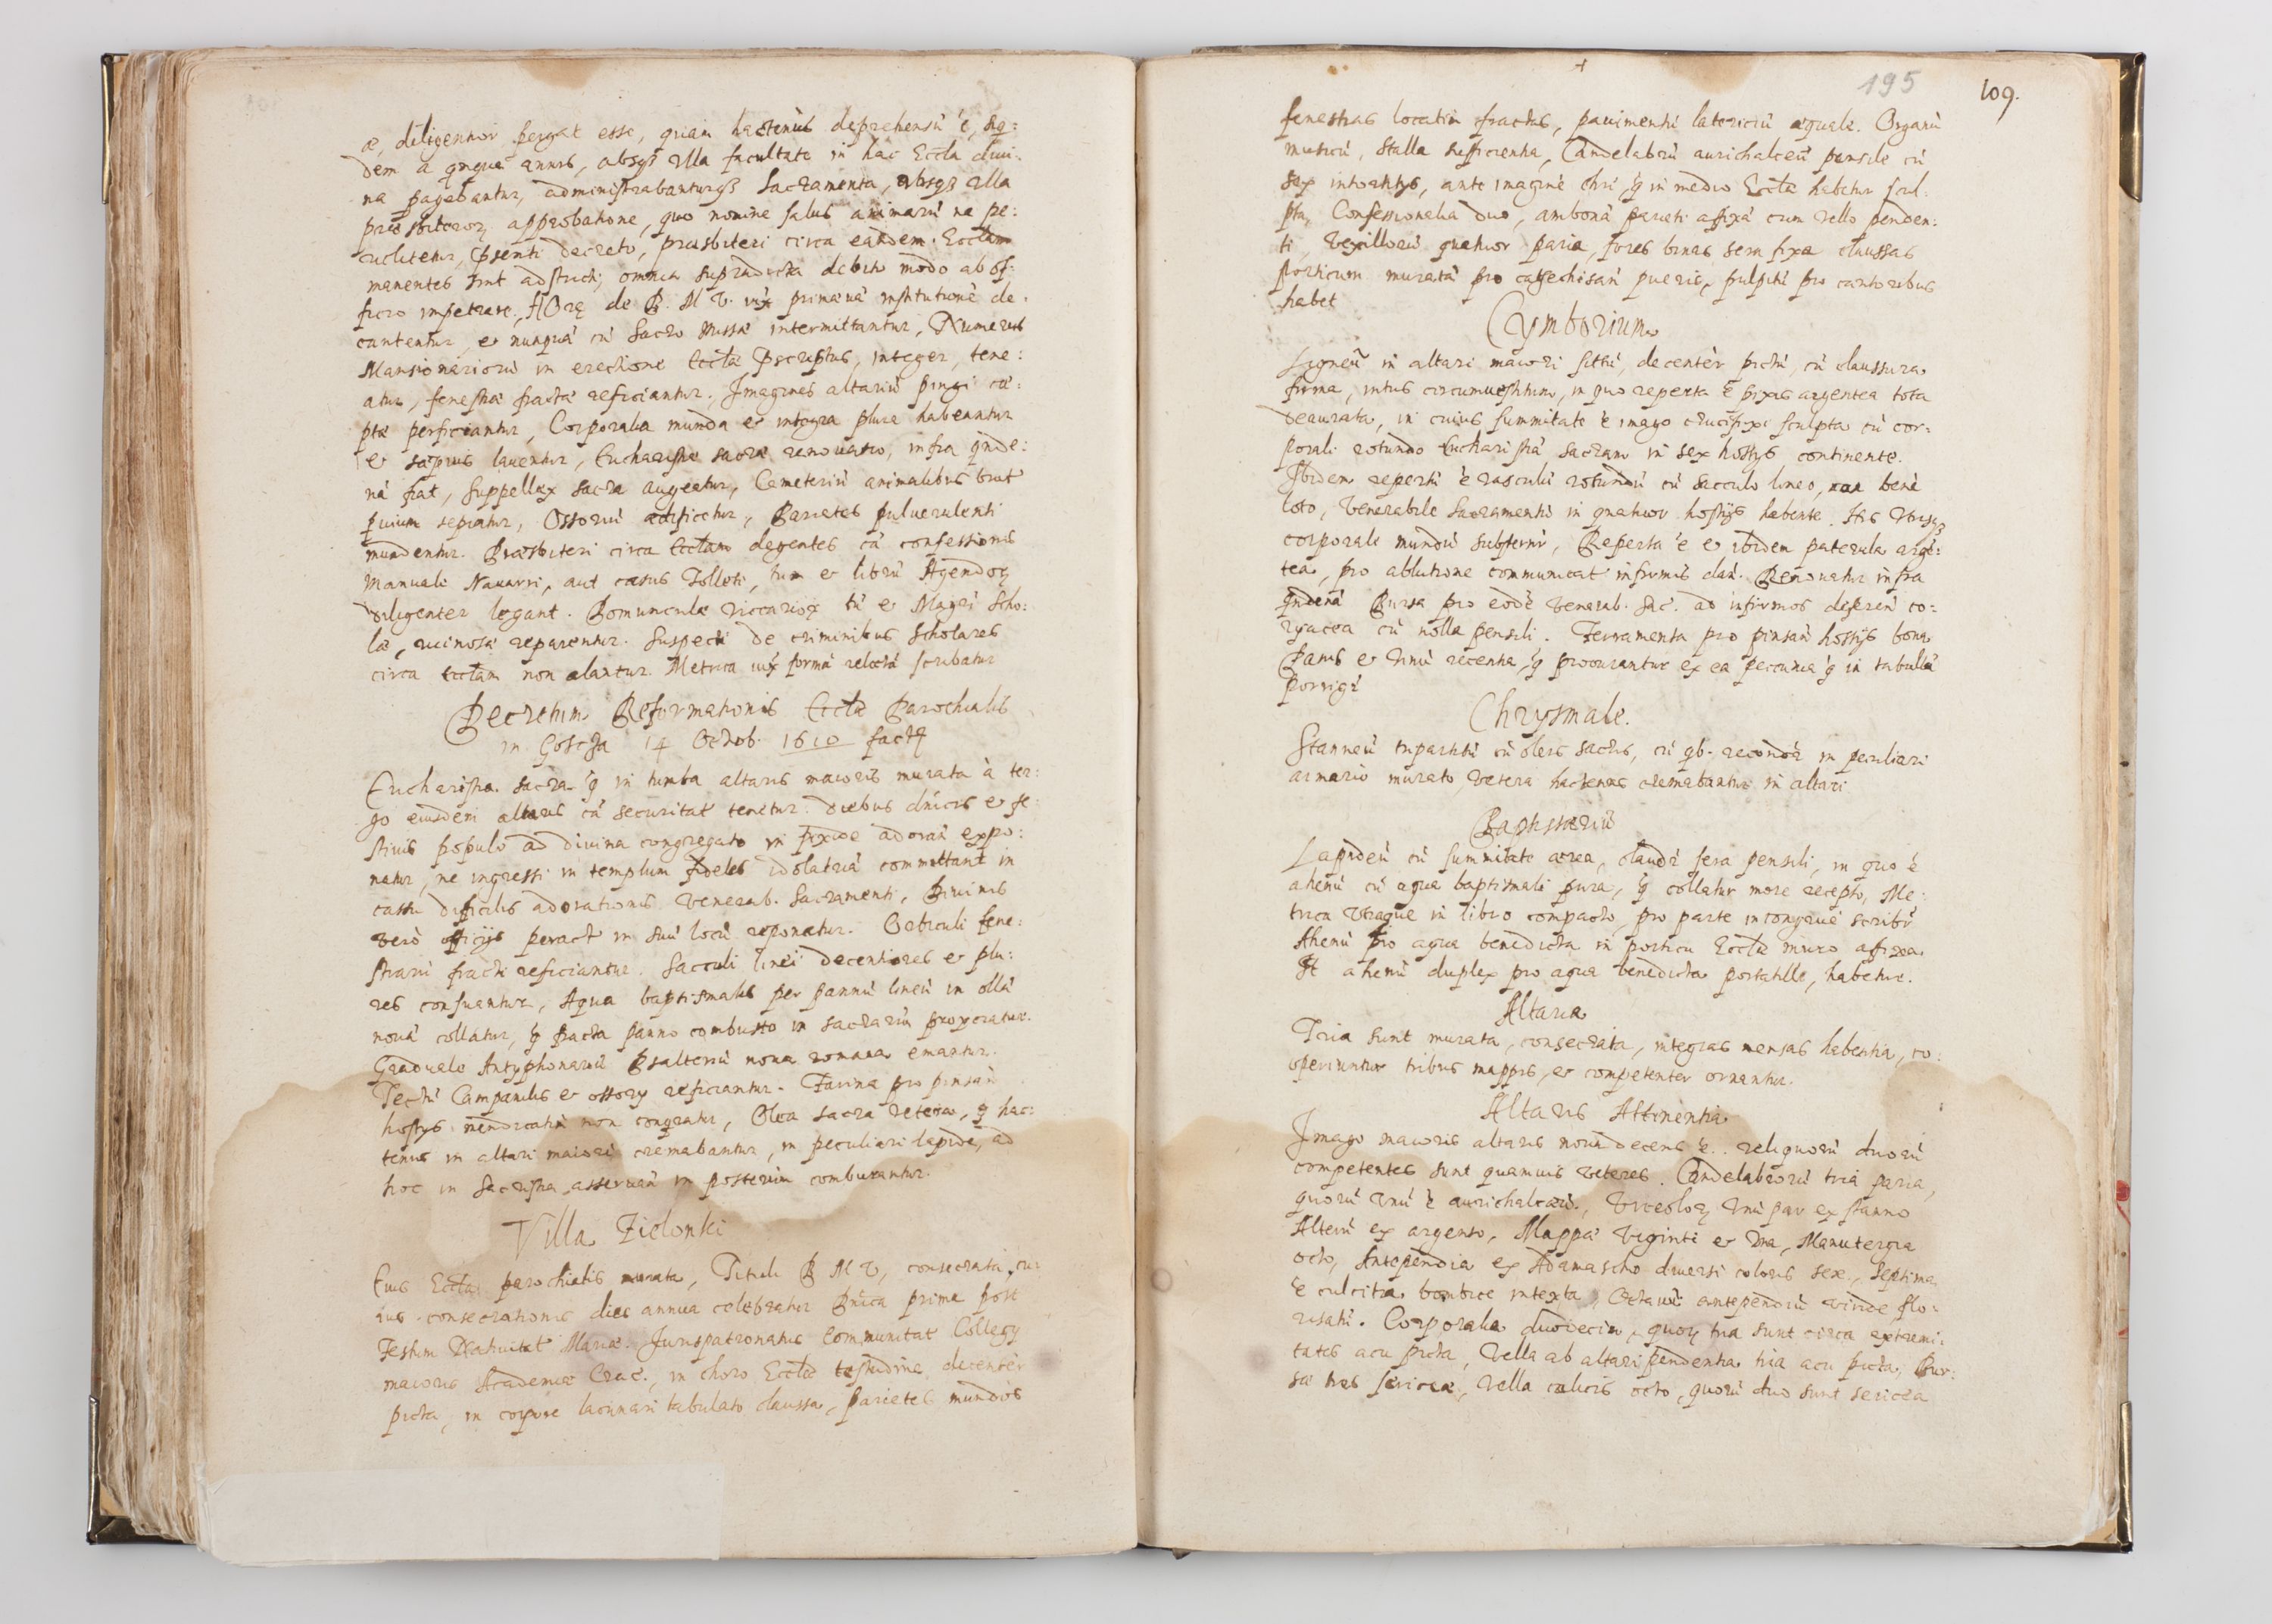 æ, diligentior pergat esse, quam hactenus deprehensū ē, siq:
dem a qnque annis, absq3 vlla facultate in hac Eccla diui:
na pagebantur, administrabanturq3 Sacramenta, absq3 vlla
præsbiteror approbatione, quo nomine salus animarū ne pe:
riclitetur, Psenti decreto, præsbiteri circa eandem Ecclam
manentes sint adstricti, omnia supradicta debito modo ab of:
ficio impetrare. HOrę de B. M V. iux primæuā institutionē de:
cantentur, et nunquā cū Sacro Missæ intermittantur, Numerus
Mansionariorū in erectione Eccłæ Pscriptus, integer, tene:
atur, fenestræ fractæ reficiantur. Imagines altariū pingi cæ:
ptæ perficiantur, Corporalia munda et integra plura habeantur
et sæpius lauentur, Eucharistiæ sacræ renouatio, infra qnde:
nā fiat, Suppellex sacra augeatur, Cæmeteriū animalibus brut
puium sepiatur, Ossoriū ædificetur, Parietes puluerulenti
mundentur. Præsbiteri circa Ecclam degentes cā confessionis
Manuale Nauarri, aut casus Tolleti, tum et librū Agendor
diligenter legant. Domunculæ vicarior tū et Magri Scho:
læ, ruinosæ reparentur. Suspecti de criminibus Scholares
circa Ecclam non alantur. Metrica iux formā relictā scribatur
Decretum Reformationis Eccłæ Parochialis
in Goscza 14 Octob. 1610 fact
Eucharistia sacra q in tumba altaris maioris murata à ter:
go eiusdem altaris cā securitat tenetur. diebus dnicis et fe:
stiuis populo ad diuina congregato in pixide adoran expo:
natur, ne ingressi in templum fideles idolatriā committant in
casu dificilis adorationis Venerab. Sacramenti, Diuinis
verò officijs peract in suū locū reponatur. Orbiculi fene:
strarū fracti reficiantur. Sacculi linei decentiores et plu:
res consuantur, Aqua baptismalis per pannū lineū in ollā
nouā collatur, q facta panno combusto in sacrariū proijciatur.
Graduale Antyphonariū Psalteriū noua romana emantur.
Tectū Campanilis et ossorij reficiantur. Farina pro pinsan
hostijs mendicatū non conqratur, Olea sacra vetera, q hac:
tenus in altari maiori cremabantur, in peculiari lapide, ad
hoc in Sacristia asseruan in posterum comburantur.
Villa Zielonki
Eius Eccła parochialis murata, Tituli B M V, consecrata, cu:
ius consecrationis dies annua celebratur Dnica prima post
Festum Natiuitat Mariæ. Jurispatronatus Communitat Collegij
maioris Academiæ Crac., in choro Eccłæ testudine decenter
picta, in corpore lacunari tabulato claussa, parietes mundos
195
109.
fenestras locatim fractas, pauimentū lateritiū æquale. Organū
musicū, Stalla sufficientia, Candelabrū aurichalceū pensile cū
sex intortitijs, ante imaginē chri, q in medio Eccłæ habetur scul:
pta, Confessionalia duo, ambonā parieti affixā cum vello penden:
ti, Vexillorū quatuor paria, fores binas sera fixa claussas
porticum muratā pro catechisan pueris, pulpitū pro cantoribus
habet
Cymborium
Ligneū in altari maiori sitū, decentèr pictū, cū claussura
firma, intus circumuestitum, in quo reperta ē pixis argentea tota
deaurata, in cuius summitate ē imago crucifixi sculpta cū cor:
porali rotundo Eucharistiā sacram in sex hostijs continente.
Ibidem repertū ē vasculū rotundū cū sacculo lineo, non benè
loto, Venerabile Sacramentū in quatuor hostijs habente. His Vtrisq3
corporale mundū substerni, Reperta ē et ibidem paterula arge:
tea, pro ablutione communicat infirmis dan. Renouatur infra
qndenā Bursa pro eodē venerab. sac. ad infirmos deferen co:
ryacea cū nolla pensili. Ferramenta pro pinsan hostijs bona
Panis et vinū recentia, q procurantur ex ea peccunia q in tabullā
porrigi
Chrysmale.
Stanneū tripartitū cū oleis sacris, cū qb. recondi in peculiari
armario murato, vetera hactenus cremabantur in altari
Baptisteriū
Lapideū cū summitate ærea, claudi sera pensili, in quo ē
ahenū cū aqua baptismali pura, q collatur more recepto, Me:
trica vtraque in libro compacto, pro parte incongruè scribi
Ahenū pro aqua benedicta in porticu Eccłæ muro affixa
It ahenū duplex pro aqua benedicta portatile, habetur.
Altaria
Tria sunt murata, consecrata, integras mensas habentia, co:
operiuntur tribus mappis, et competenter ornantur.
Altaris Attinentia
Imago maioris altaris noua decens ē. reliquorū duorū
competentes sunt quamuis veteres. Candelabrorū tria paria,
quorū vnū ē aurichalceū, Vrceolor vnū par ex stanno
Alterū ex argento, Mappæ viginti et vna, Manutergia
octo, Antependia ex Adamascho diuersi coloris sex, Septima
ē culcitra bombice intexta, Octauū antependiū viride flo:
risatū. Corporalia duodecim, quor tria sunt circa extremi:
tates acu picta, Vella ab altari pendentia tria acu picta, Bur:
sæ tres sericeæ, Vella calicis octo, quorū duo sunt sericea